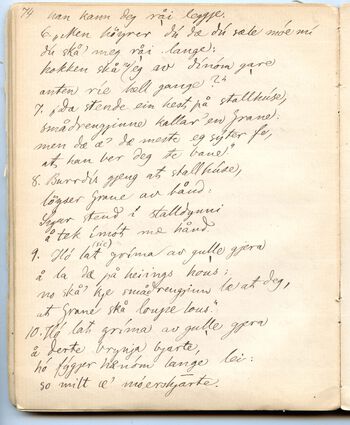 74 han kann deg råi leggje.
6. „Aken höyrer dú dæ dú sæle móe mi
dú skå' meg råi lange:
hokken skå' eg av dinom gare
anten rie hell gange?"
7. „Da stende ein hest på stallhúse,
smådrengjinne kallar 'en Grane:
men dæ æ' dæ meste eg syter fø,
at han ber deg te bane."
8. Burrdis gjeng at stallhúse,
löyser Grane av bånd:
stend i stalldynni
å tek imót me hånd.
9. Hó lat gríma av gulle gjera
(sic)
å la dæ på heirings hous;
no skå' kje smådrengjinn le at deg,
at Grane skå loupe lous."
10. Hó lat gríma av gulle gjera
å derte brynja bjarte,
hó fygjer hænóm lange lei:
so milt æ' móerhjarte.